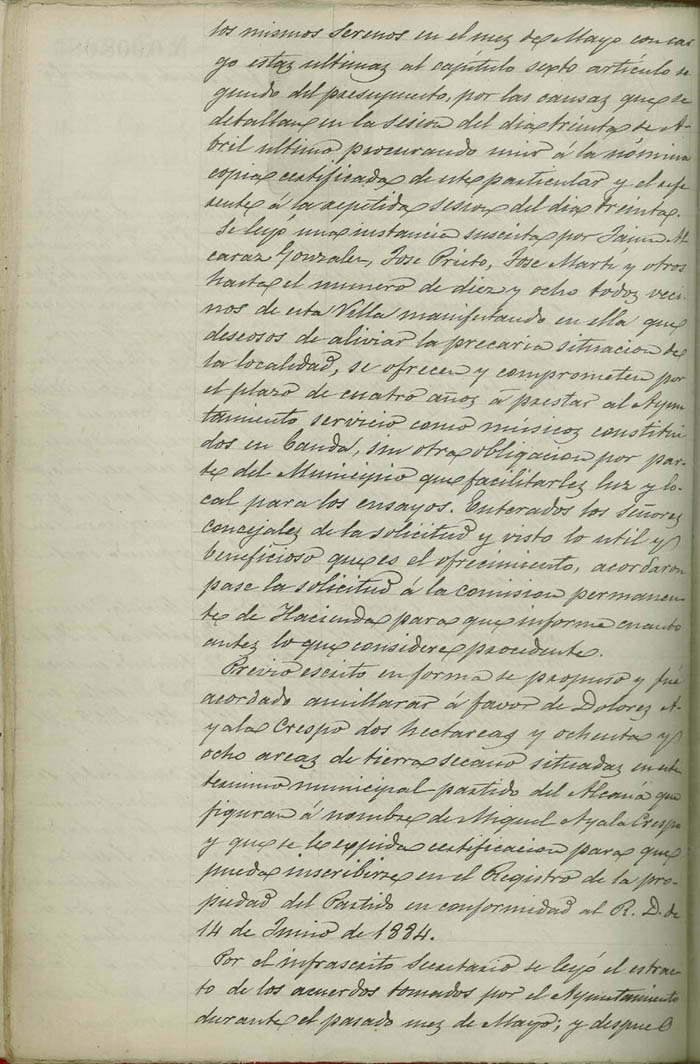 los mismos Serenos en el mez de Mayo con car
go estaz ultimaz al capítulo sexto artículo se
gundo del presupuesto, por las causaz que se
detallan en la sesion del dia treinta de A-
bril ultimo procurando unir á la nómina
copia certificada de este particular y el refe
rente á la repetida sesion del dia treinta.
Se leyó una instancia suscrita por Jaime Al
caraz Gonzalez, Jose Prieto, Jose Martí y otros
hasta el numero de diez y ocho todoz veci
nos de esta Villa manifestando en ella que
deseosos de aliviar la precaria situacion de
la localidad, se ofrecen y comprometen por
el plazo de cuatro añoz á prestar al Ayun
tamiento servicio como musicoz constitui
dos en banda, sin otra obligacion por par-
te del Municipio que facilitarlez luz y lo-
cal para los ensayos. Enterados los señorez
concejalez de la solicitud y visto lo util y
beneficioso que es el ofrecimiento, acordaron
pase la solicitud á la comision permanen
te de Hacienda para que informe cuanto
antez lo que considere procedente.
Previo escrito en forma se propuso y fué
acordado amillarar á favor de Dolorez A-
yala Crespo dos hectareaz y ochenta y
ocho areaz de tierra secano situadaz en este
termino municipal partido del Alcaná que
figuran á nombre de Miguel Ayala Crespo
y que se le expida certificacion para que
pueda inscribirse en el Registro de la pro-
piedad del Partido en conformidad al R. D. de
14 de Junio de 1884.
Por el infrascrito Secretario se leyó el estrac
to de los acuerdos tomados por el Ayuntamiento
durante el pasado mez de Mayo; y despues